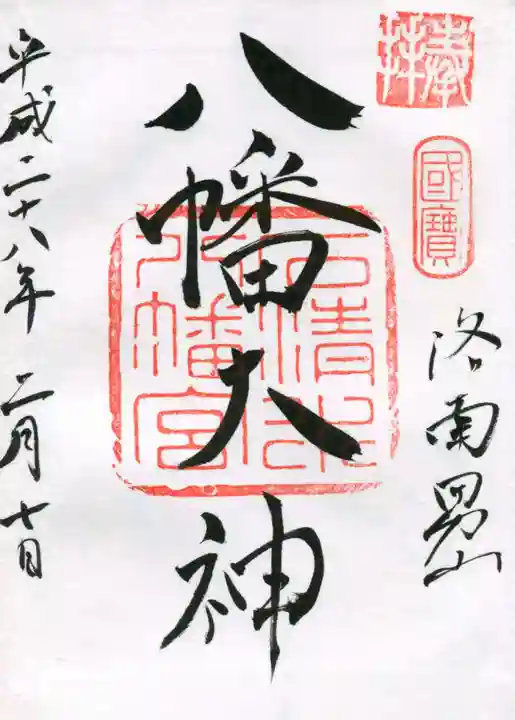 奉拝
國寶
洛南男山
八幡大神
石清水
八幡宮
平成二十八年 二月十日